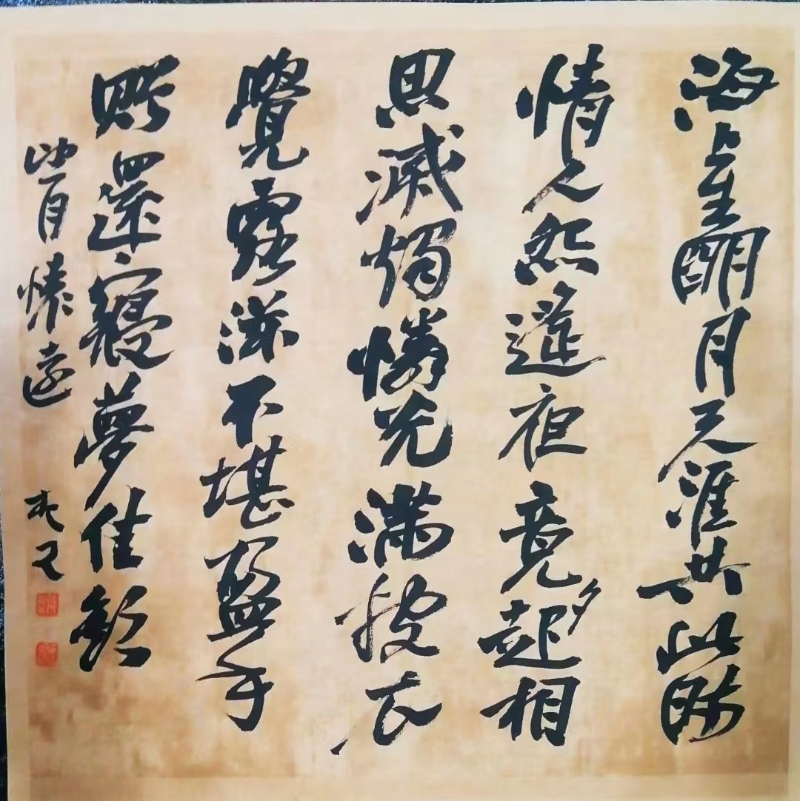 海上生明月天涯共此時
情人怨遙夜竟夕起相
思滅燭憐光滿披衣
覺露滋不堪盈手
贈還寢夢佳期
望月懷遠